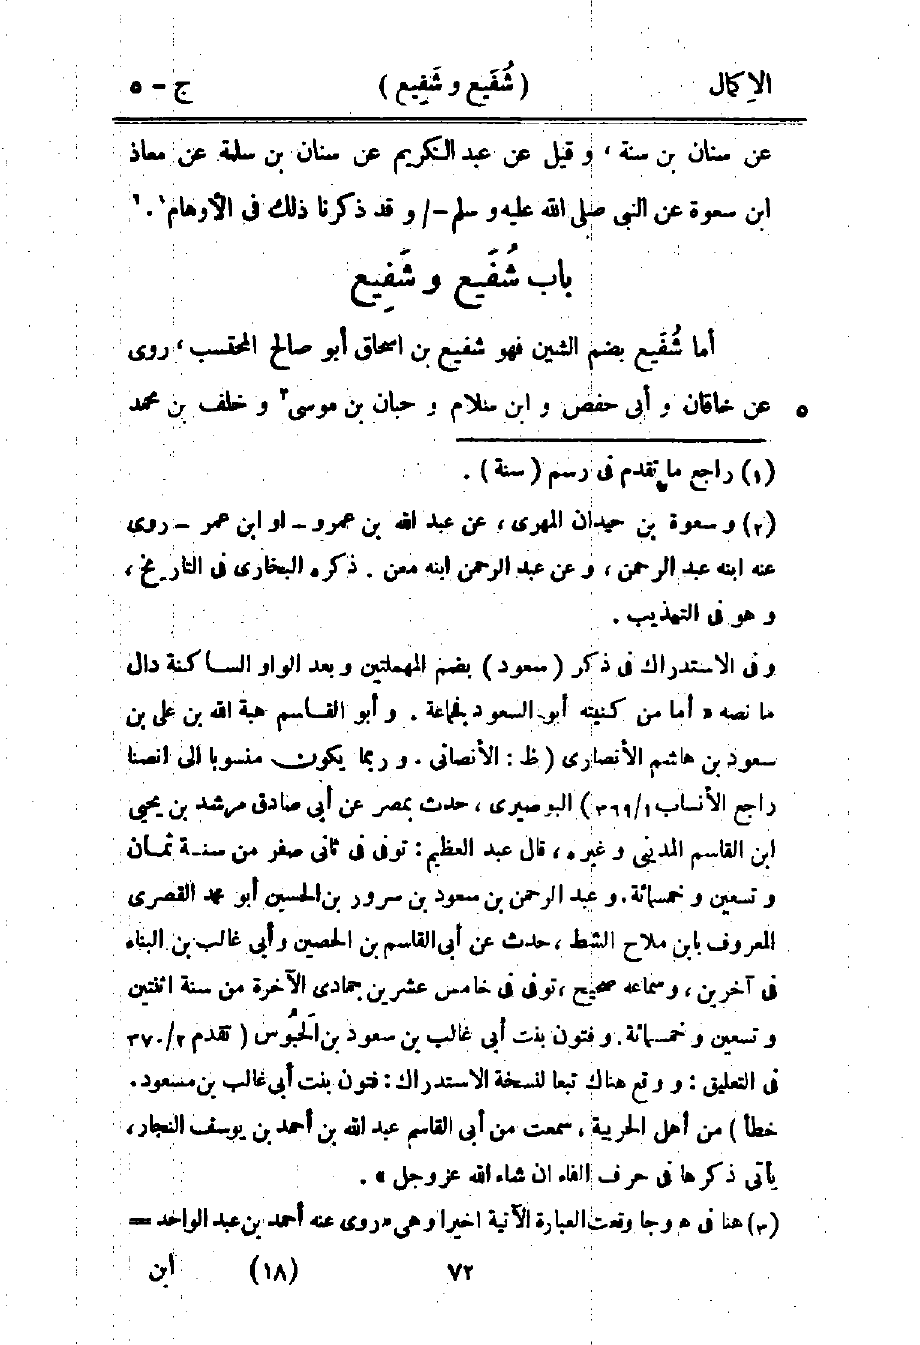 الإكمال ( شُفَيع و شَفِيع ) ج - ٥
عن سنان بن سنة ، و قيل عن عبد الكريم عن سنان بن سلمة عن معاذ
ابن سعوة عن النبى صلى الله عليه و سلم -/ و قد ذكرنا ذلك فى الأوهام
باب شُفَيع و شَفِيع
أما شُفَيع بضم الشين فهو شفيع بن اسحاق أبو صالح المحتسب ، روى
٥ عن خاقان و أبى حفص و ابن سلام و حبان بن موسى٣ و خلف بن محمد
(١) راجع ما تقدم فى رسم ( سنة ) .
(٢) و سعوة بن حيدان المهرى ، عن عبد الله بن عمرو - او ابن عمر - روى
عنه ابنه عبد الرحمن ، و عن عبد الرحمن ابنه معن . ذكره البخارى فى التاريخ ،
و هو فى التهذيب .
و فى الاستدراك فى ذكر ( سعود ) بضم المهملتين و بعد الواو الساكنة دال
ما نصه « أما من كنيته أبو السعود فجماعة . و أبو القاسم هبة الله بن على بن
سعود بن هاشم الأنصارى ( ظ : الأنصانى . و ربما يكون منسوبا الى انصنا
راجع الأنساب ٣٦٩/١ ) البوصيرى ، حدث بمصر عن أبى صادق مرشد بن يحيى
ابن القاسم المدينى و غيره ، قال عبد العظيم : توفى فى ثانى صفر من سنة ثمان
و تسعين و خمسمائة . و عبد الرحمن بن سعود بن سرور بن الحسين أبو محمد القصرى
المعروف بابن ملاح الشط ، حدث عن أبى القاسم بن الحصين و أبى غالب بن البناء
فى آخرين ، و سماعه صحيح ، توفى فى خامس عشرين جمادى الآخرة من سنة اثنتين
و تسعين و خمسمائة . و فتون بنت أبى غالب بن سعود بن الحَبُوس ( تقدم ٣٧٠/٢
فى التعليق : و وقع هناك تبعا لنسخة الاستدراك : فتون بنت أبى غالب بن مسعود .
خطأ ) من أهل الحربية ، سمعت من أبى القاسم عبد الله بن أحمد بن يوسف النجار ،
يأتى ذكرها فى حرف الفاء ان شاء الله عز وجل » .
(٣) هنا فى ه و جا وقعت العبارة الآتية اخيرا و هى « روى عنه أحمد بن عبد الواحد =
٧٢ (١٨) ابن